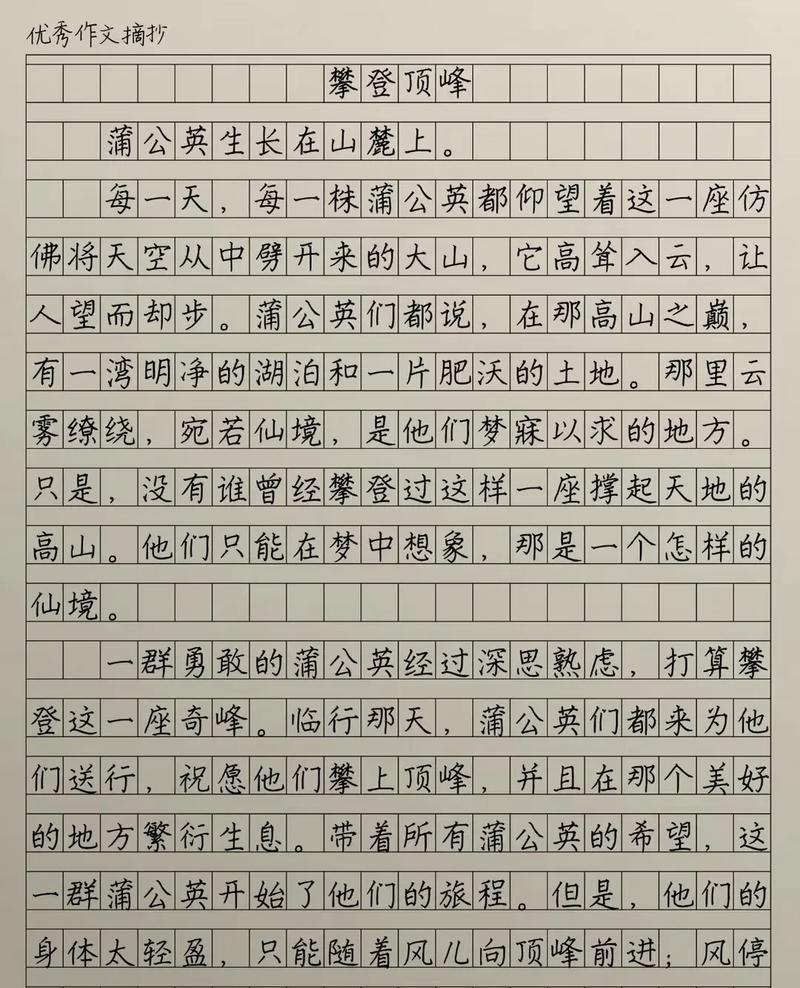 优秀作文摘抄
攀登顶峰
蒲公英生长在山麓上。
每一天，每一株蒲公英都仰望着这一座仿
佛将天空从中劈开来的大山，它高耸入云，让
人望而却步。蒲公英们都说，在那高山之巅，
有一湾明净的湖泊和一片肥沃的土地。那里云
雾缭绕，宛若仙境，是他们梦寐以求的地方。
只是，没有谁曾经攀登过这样一座撑起天地的
高山。他们只能在梦中想象，那是一个怎样的
仙境。
一群勇敢的蒲公英经过深思熟虑，打算攀
登这一座奇峰。临行那天，蒲公英们都来为他
们送行，祝愿他们攀上顶峰，并且在那个美好
的地方繁衍生息。带着所有蒲公英的希望，这
一群蒲公英开始了他们的旅程。但是，他们的
身体太轻盈，只能随着风儿向顶峰前进；风停